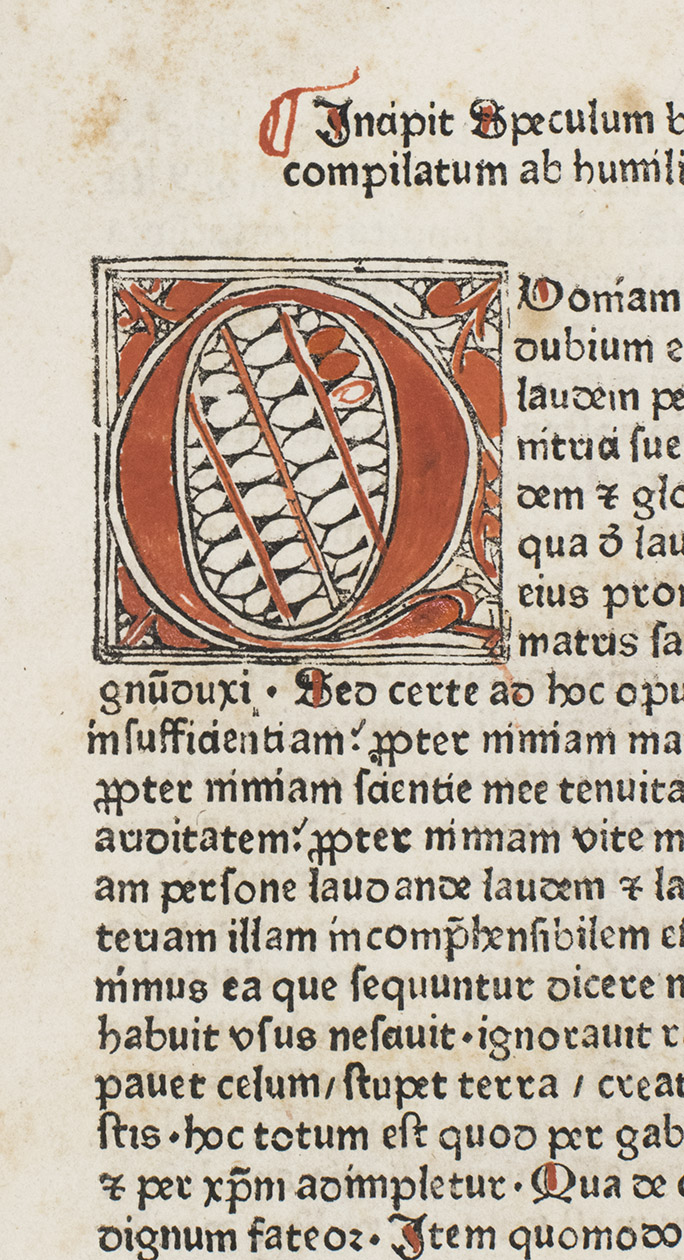 Incipit Speculum b
compilatum ab humili
Q
Voniam
dubium e
laudem pe
nitrici sue
dem ⁊ glo
qua d̄ lau
eius pron
matris sa
gnū duxi · Sed certe ad hoc opu
insufficientiam: ꝓpter nimiam ma
ꝓpter nimiam scientie mee tenuita
ariditatem: ꝓpter nimiam vite m
am persone laudande laudem ⁊ la
teriam illam incomp̄hensibilem es
nimus ea que sequuntur dicere n
habuit vsus nesciuit·ignorauit r
pauet celum/ stupet terra / creat
stis·hoc totum est quod per gab
⁊ per xp̄m adimpletur· Qua de c
dignum fateoꝛ· Item quomodo